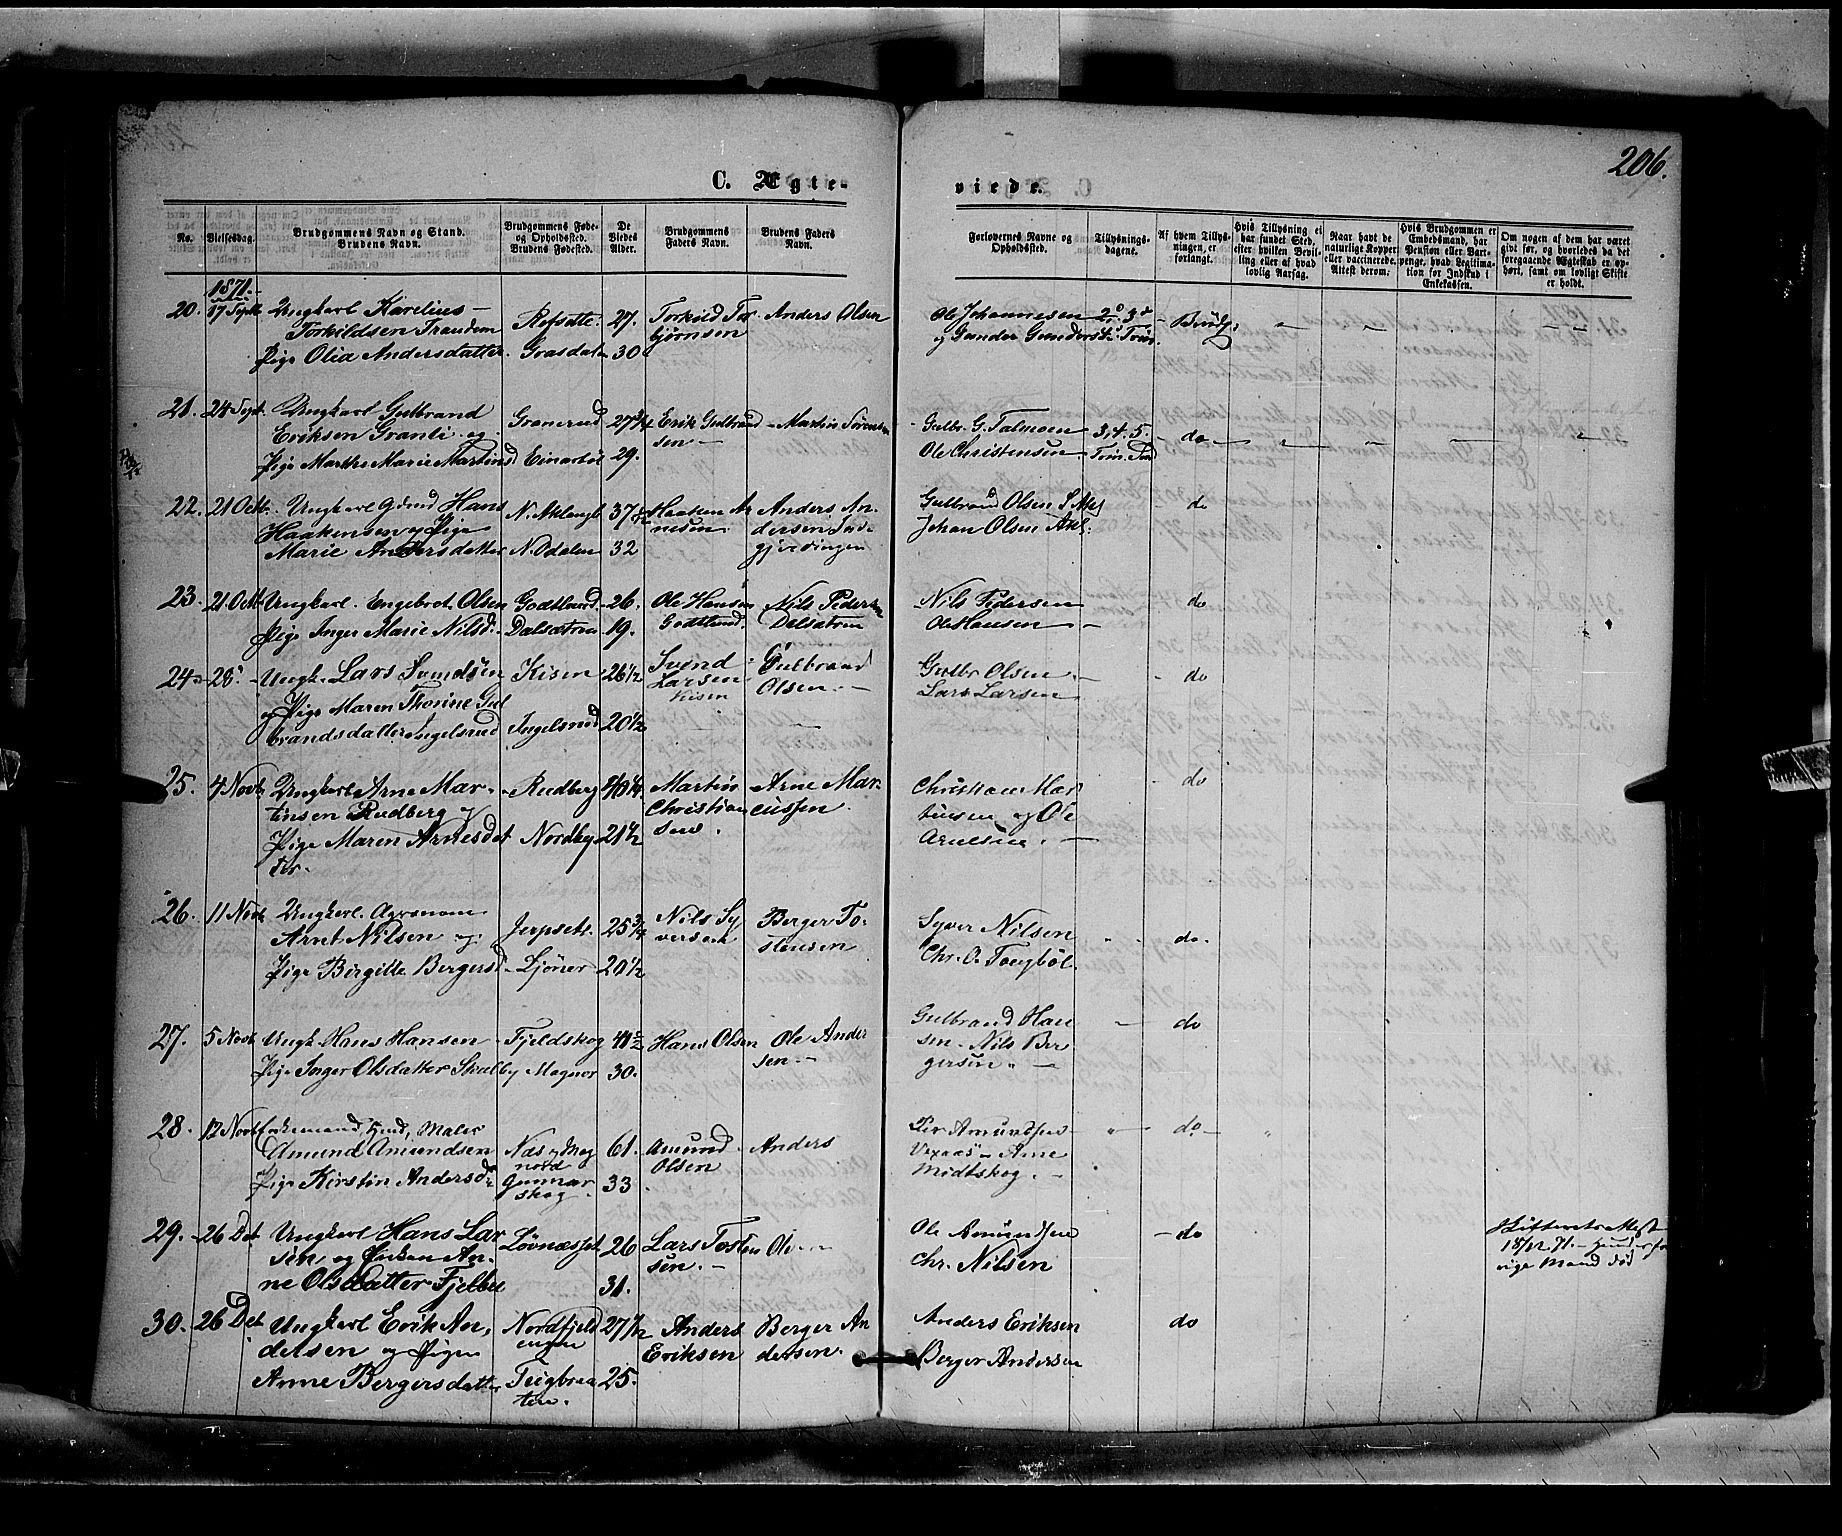 206.
C. Ægte-
viede.
No.
Vielsesdag.
Brudgommens Navn og Stand.
Brudens Navn.
Brudgommens Føde-
og Opholdsted.
Brudens Fødested.
De
Viedes
Alder.
Brudgommens
Faders Navn.
Brudens Faders
Navn.
Forlovernes Navne og
Opholdsted.
Tillysnings-
dagene.
Af hvem Tillys-
ningen, er
forlangt.
Hvis Tillysning ei
har fundet Sted,
efter hvilken Bevil-
ling eller af hvad
lovlig Aarsag.
Naar havt de
naturlige Kopper
eller vaccinerede.
Attest derom:
Hvis Brudgommen er
Embedsmand, har
Pension eller Vart-
penge, hvad Legitima-
tion for Indskud i
Enkekassen.
Om nogen af dem har været
gift før, og hvorledes da det
foregaaende Ægteskab er op-
hørt, samt om lovligt Skifte
er holdt.
1871.
20. 17 Sept. Ungkarl Karelius
Torkildsen Trandem
Pige Olia Andersdatter.
Refsdte.
Grasdal
27.
30
Torkild Tor
bjørnsen
Anders Olsen
Ole Johannesen
og Gunder Gunders
2 3
Brudg.
21. 24 Sept. Ungkarl Gulbrand
Eriksen Granli og
Pige Marthe Marie Martinsd
Granerud
Einarbøl
27 3/4
29.
Erik Gulbrand
sen
Martin Sørensen
Gulbr. G. Talmoen
Ole Christensen.
3, 4. 5.
do
22. 21 Octb. Ungkarl Gmd Hans
Haakensen og Pige
Marie Andersdatter
N. Aklangb
N. Odalen
37
32
Haaken Ar
nesen
Anders An-
dersen
gjerdingen
Gulbrand Olsen S. Akl
Johan Olsen Akl.
do
23. 21 Octb. Ungkarl. Engebret Olsen
Pige Inger Marie Nilsd.
Godtlund
Dalsætren
26.
19.
Ole Hansen
Godtlund.
Nils Peders
Dalsætren
Nils Pedersen
Ole Hansen
do
24 28 Ungk. Lars Svendsen
og Pige Maren Thorine Gul
brandsdatter Ingelsrud
Kisen
Ingelsrud
26 1/2
20 1/2
Svend
Larsen
Kisen
Gulbrand
Olsen.
Gulbr. Olsen
Lars Larsen
do
25. 4 Novb. Ungkarl Arne Mar-
tinsen Rudberg og
Pige Maren Arnesdat
ter.
Rudberg
Nordby
40 1/4
21 1/2
Martin
Christian
sen.
Arne Mar
cussen.
Christian Mar
tinsen og Ole
Arnesen.
do
26. 11 Novb. Ungkarl. Agronom
Arnt Nilsen og
Pige Birgitte Bergersd
Jerpset.
Ljöner
25 3/4
20 1/2
Nils Sy
versen
Berger To-
stensen
Syver Nilsen
Chr. O. Tangböl.
do.
27. 5 Novb. Ungk. Hans Hansen
Pige Inger Olsdatter Skulby
Fjeldskog
Magnor
41
30.
Hans Olsen
Ole Ander
sen.
Gulbrand Han
sen. Nils Ber
gersen
do
28. 12 Novb. Enkemand, Maler
Amund Amundsen
Pige Kirstin Andersd
Næs og Mag
nord
Gunnar
skog.
61.
33
Amund
Olsen
Anders
Per Amundsen
Vexaas Arne
Midtskog.
do
29. 26 Det Ungkarl Hans Lar
sen, og Enken An-
ne Olsdatter Fjelbu
Løvnæsset.
26
31.
Lars Tosten
sen.
Ole Amundsen
Chr. Nilsen
do
Skifteretsattest
18/12 71.
rige Mand død
30. 26 Det Ungkarl Erik An-
dersen og Pigen
Anne Bergersdatter
Nordfjeld
engen
Teigbraa
ten.
27 1/2
25.
Anders
Eriksen
Berger An
dersen.
Anders Eriksen
Berger Andersen
do